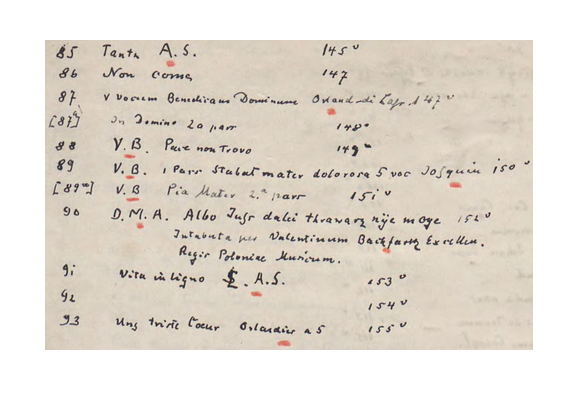 85 Tanta A.S. 145v
86 Non come 147
87 V vocum Benedicam Dominum Orland di Lass. 147v
[87a] In Domino 2a pars 148v
88 V.B. Pace non trovo 149v
89 V.B. 1 Pars Stabat mater dolorosa 5 voc Josquin 150v
[89a] V.B Pia Mater 2.a pars 151v
90 D.M.A. Albo Jusz dalei thrawacz nije moge 152v
Intabuta per Valentinum Backfartz Excellen.
Regis Poloniae Musicum.
91 Vita in ligno A.S. 153v
92 154v
93 Ung triste Coeur Orlandus a 5 155v